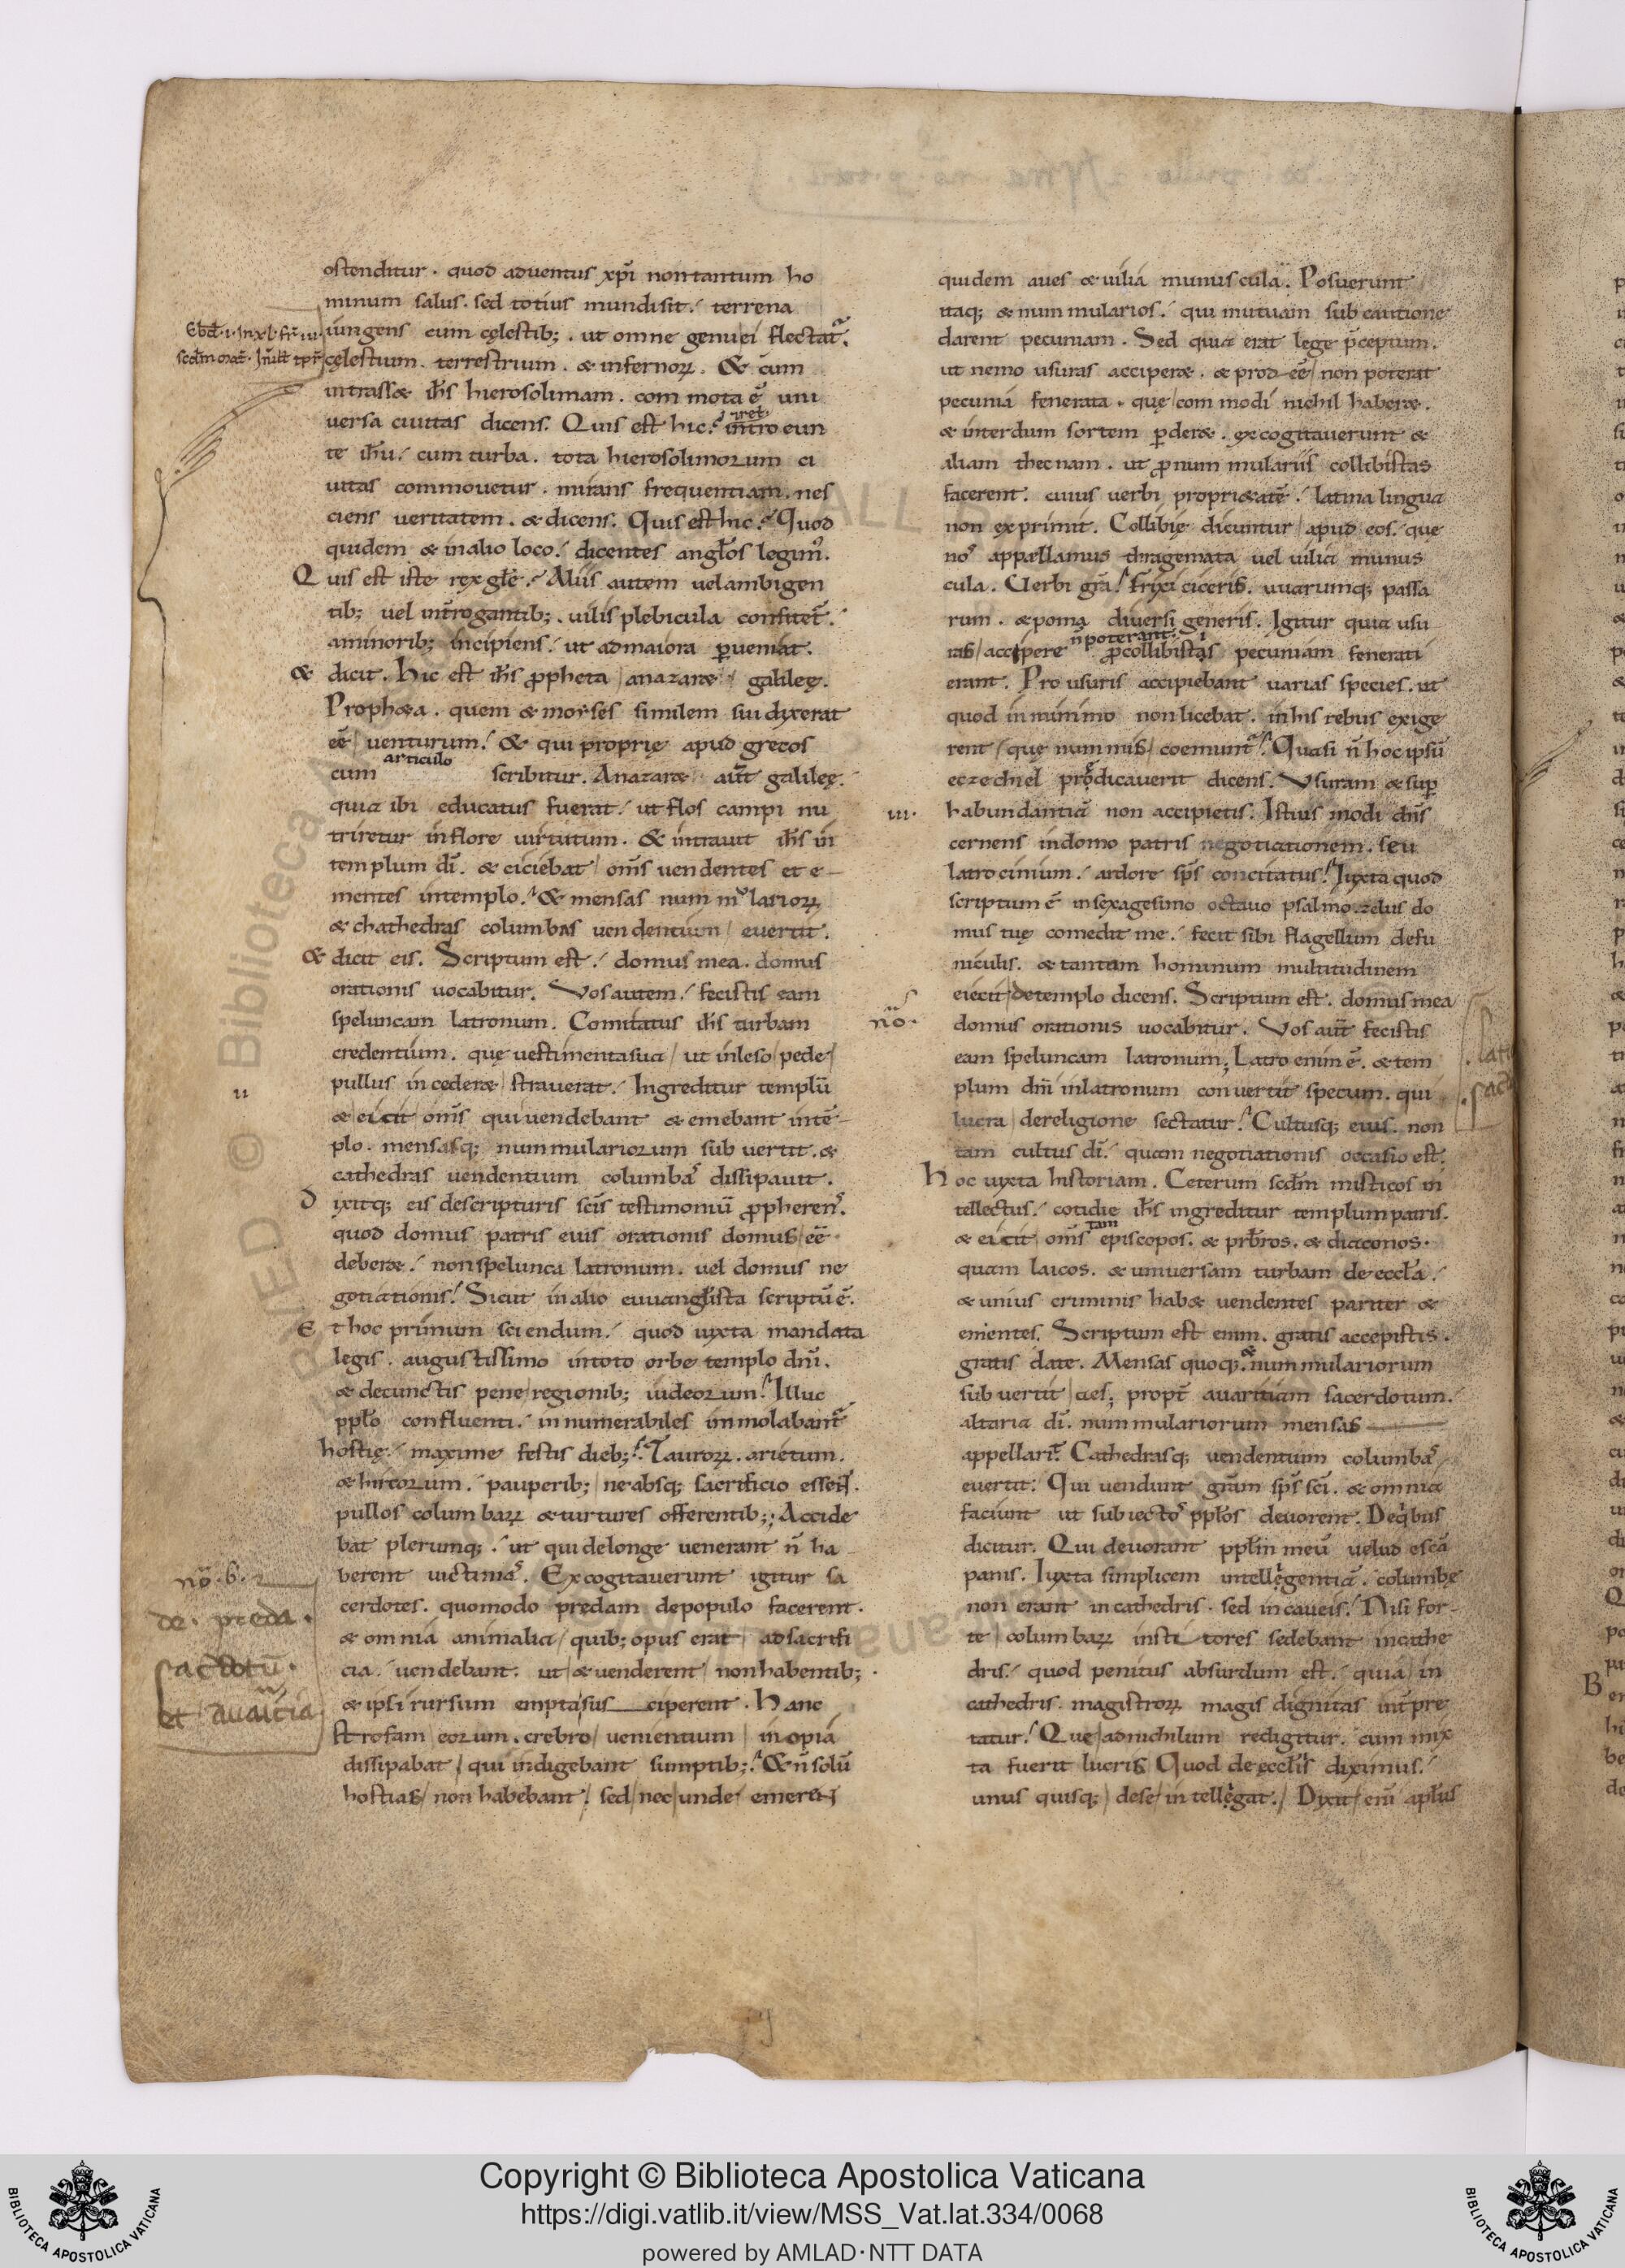 ostenditur. quod aduentus xp̄i non tantum ho
minum salus. sed totius mundi sit. terrena
iungens cum cęlestib;. ut omne genu ei flectat᷑.
cęlestium. terrestrium. & infernoꝝ. & cum
intrass& ih̄s hierosolimam. com mota ē uni
uersa ciuitas dicens. Quis est hic? intro eun
te ih̄u. cum turba. tota hierosolimorum ci
uitas commouetur. mirans frequentiam. nes
ciens ueritatem. & dicens. Quis est hic? Quod
quidem & in alio loco. dicentes angl̄os legim᾽.
Quis est iste rex gl̄ę? Aliis autem uel ambigen
tib; uel int̄rogantib;. uilis plebicula confitet᷑.
a minorib; incipiens. ut ad maiora ꝑueniat.
& dicit. Hic est ih̄s ꝓpheta a nazar& galileę.
Proph&a. quem & moyses similem sui dixerat
eē uenturum. & qui proprię apud grecos
cum articulo scribitur. A nazar& aut̄ galileę.
quia ibi educatus fuerat. ut flos campi nu
triretur in flore uirtutum. & intrauit ih̄s in
templum dī. & eiciebat om̄s uendentes et e-
mentes in templo. & mensas num mularioꝝ
& chathedras columbas uendentium euertit.
& dicit eis. Scriptum est. domus mea. domus
orationis uocabitur. Vos autem. fecistis eam
speluncam latronum. Comitatus ih̄s turbam
credentium. quę uestimenta sua ut inleso pede
pullus inceder& strauerat. Ingreditur templū
& eicit om̄s qui uendebant & emebant in tē-
plo. mensasq; nummulariorum sub uertit. &
cathedras uendentium columbas dissipauit.
Dixitq; eis de scripturis sc̄is testimoniū ꝓpheren᾽.
quod domus patris euis orationis domus eē
deber&. non spelunca latronum. uel domus ne
gotiationis. Sicut in alio euuangl̄ista scriptū ē.
Et hoc primum sciendum. quod iuxta mandata
legis. augustissimo in toto orbe templo dn̄i.
& de cunctis pene regionib; iudeorum. Illuc
ppl̄o confluenti. in numerabiles immolabant᷑
hostię. maxime festis dieb;. Tauroꝝ. arietum.
& hircorum. pauperib; ne absq; sacrificio essent.
pullos columbaꝝ & turtures offerentib;. Accide
bat plerumq;. ut qui de longe uenerant n̄ ha
berent uictimas. Excogitauerunt igitur sa
cerdotes. quomodo predam de populo facerent.
& omnia animalia quib; opus erat ad sacrifi
cia. uendebant. ut & uenderent non habentib;.
& ipsi rursum empta sus ciperent. Hanc
strofam eorum. crebro uenientium inopiā
dissipabat qui indigebant sumptib;. & n̄ solū
hostias non habebant. sed nec unde emerent
quidem aues & uilia munuscula. Posuerunt
itaq; & nummularios. qui mutuam sub cautione
darent pecuniam. Sed quia erat lege p̄ceptum.
ut nemo usuras acciper&. & prod eē non poterat
pecunia fenerata. quę com modi nichil haber&.
& interdum sortem ꝑder&. excogitauerunt &
aliam thecnam. ut ꝓ num mulariis collibistas
facerent. cuius uerbi propri&atē. latina lingua
non exprimit. Collibię dicuntur apud eos. que
nos appellamus thragemata uel uilia munus
cula. Verbi grā. frixi ciceris. uuarumq; passa
rum. & poma diuersi generis. Igitur quia usu
ras accipere n̄ poterant. ꝓ collibistas pecuniam fenerati
erant. Pro usuris accipiebant uarias species. ut
quod in nummo non licebat. in his rebus exige
rent quę nummis coemunt᷑. Quasi n̄ hoc ipsū
eczechiel prędicauerit dicens. Vsuram & suꝑ
habundantiā non accipietis. Istius modi dn̄s
cernens in domo patris negotiationem. seu
latrocinium. ardore sp̄s concitatus. Iuxta quod
scriptum ē in sexagesimo octauo psalmo. zelus do
mus tuę comedit me. fecit sibi flagellum de fu
niculis. & tantam hominum multitudinem
eiecit de templo dicens. Scriptum est. domus mea
domus orationis uocabitur. Vos aut̄ fecistis
eam speluncam latronum; Latro enim ē. & tem
plum dn̄i in latronum conuertit specum. qui
lucra de religione sectatur. Cultusq; eius. non
tam cultus dī. quam negotiationis occasio est.
Hoc iuxta historiam. Ceterum scd̄m misticos in
tellectus. cotidie ih̄s ingreditur templum patris.
& eicit om̄s tam episcopos. & prb̄ros. & diaconos.
quam laicos. & uniuersam turbam de eccl̄a.
& unius criminis hab& uendentes pariter &
ementes. Scriptum est enim. gratis accepistis.
gratis date. Mensas quoq; & nummulariorum
sub uertit aes; propt̄ auaritiam sacerdotum.
altaria dī. nummulariorum mensas
appellari. Cathedrasq; uendentium columbas
euertit. Qui uendunt grām sp̄s sc̄i. & omnia
faciunt ut subiectos ppl̄os deuorent. De qibus
dicitur. Qui deuorant ppl̄m meū uelud escā
panis. Iuxta simplicem intelligentiā. columbę
non erant in cathedris. sed in caueis. Nisi for-
te columbaꝝ insti tores sedebant in cathe
dris. quod penitus absurdum est. quia in
cathedris. magistroꝝ magis dignitas int̄pre
tatur. Que ad nichilum redigitur. cum mix
ta fuerit lucris. Quod de eccl̄is diximus.
unus quisq; de se intelligat. Dixit eni apl̄us
ii
iii.
nō.
nō.b.
de. preda.
sacerdotū.
et auaritia
Copyright © Biblioteca Apostolica Vaticana
https://digi.vatlib.it/view/MSS_Vat.lat.334/0068
powered by AMLAD·NTT DATA
BIBLIOTECA APOSTOLICA VATICANA
BIBLIOTECA APOSTOLICA VATICANA